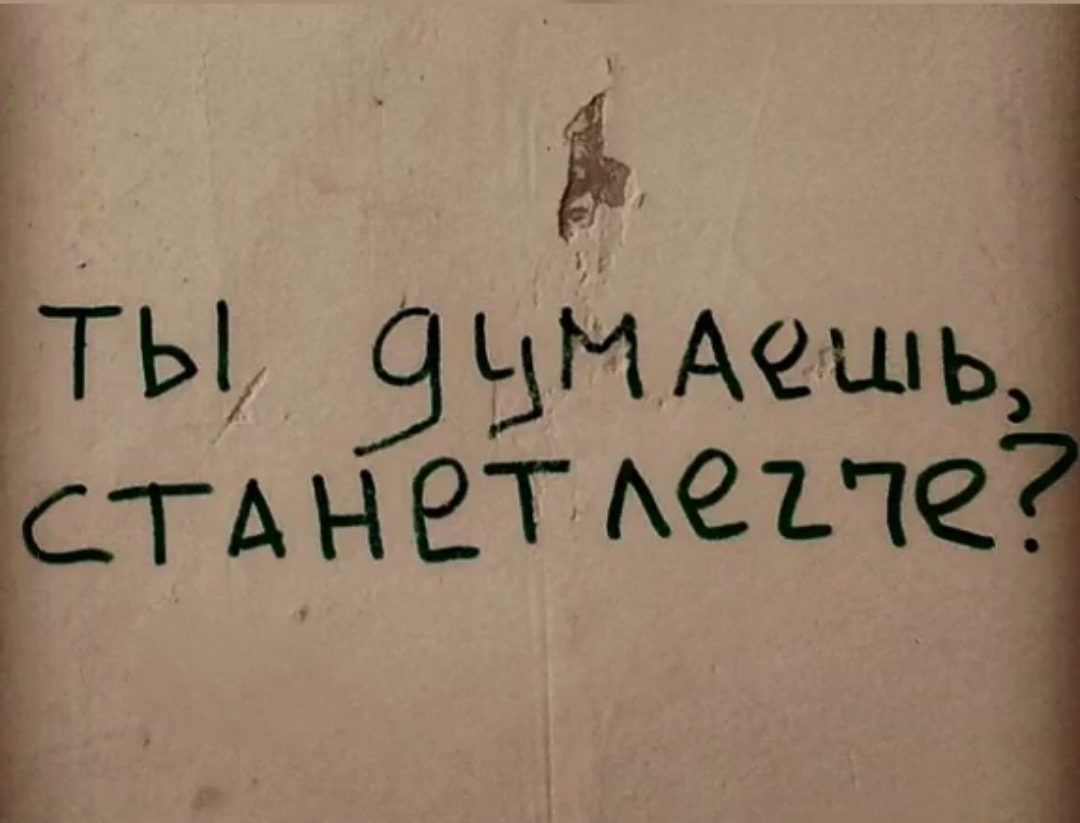 ты думаешь,
станет легче?